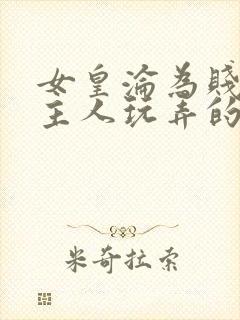 女皇淪為賤
主人玩弄的
米奇拉索